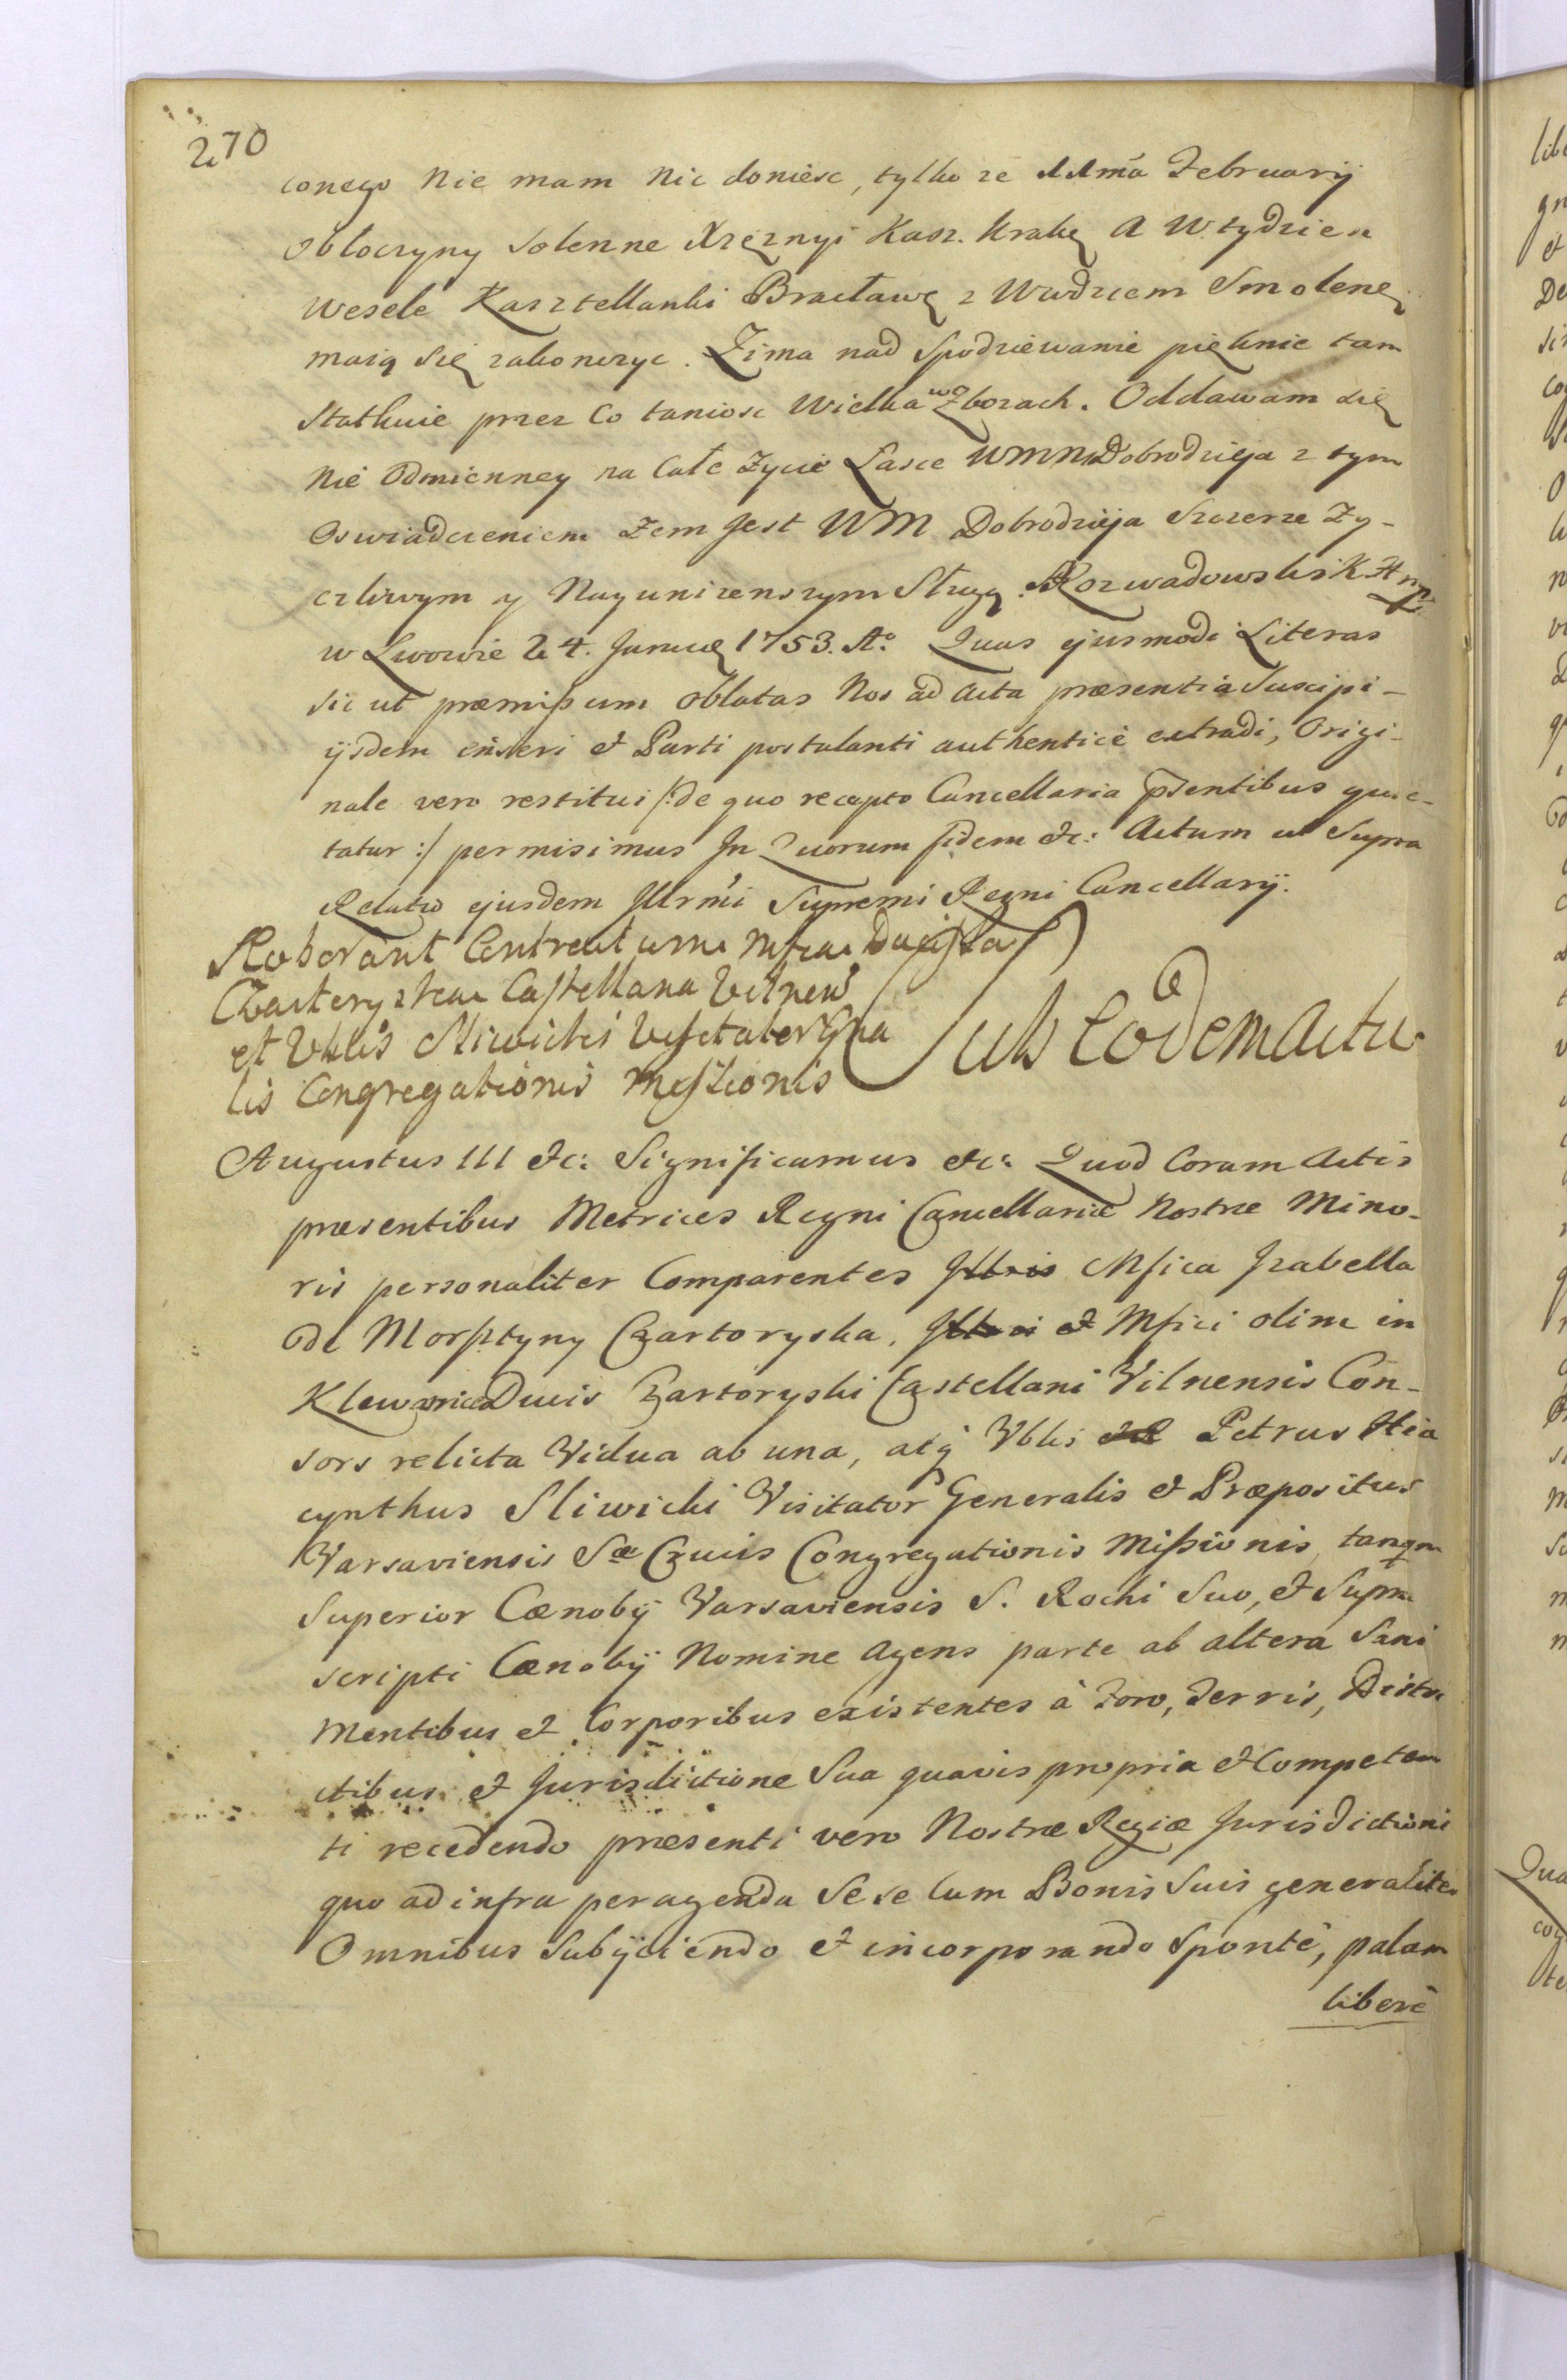 270
conego Nie mam Nic donieść, tylko ze 11mã Februarij
Obłoczyny Solenne Xsięznyi Kasz. Krakę A W tydzien
Wesele Kasztellanki Bracławę z Wwdzicem Smolenę
maią Się zakonczyc. Zima nad Spodziewanie pięknie tam
Statkuie przez Co taniosc Wielka wo Zbozach. Oddawam się
Nie Odmienney na Całe Zycie Łasce WMM Dobrodzieja z tym
Oswiadczeniem Zem Jest WM Dobrodzieja Szczerze Zy-
czliwym y Nayunizenszym Sługą. Rozwadowski K. H
w Lwowie 24. Januarij 1753. Aº Quas ejusmodi Literas
sic ut præmissum oblatas Nos ad Acta præsentia Suscipi-
ijsdem inseri et Parti postulanti authentice extradi, Origi-
nale vero restitui /: de quo recepto Cancellaria p̃sentibus quie-
tatur :/ permisimus In Quorum fidem etc: Actum ut Supra
Relatio ejusdem Illrmi Supremi Regni Cancellarij.
Roborant Contractum Mficae Ducissa
Czartoryskae Castellana Vilnen
et Vblis Sliwicki Visitator Gnalis
lis Congregationis Missionis
Sub Eodem Actu
Augustus III etc: Significamus etc: Quod Coram Actis
præsentibus Metrices Regni Cancellariæ Nostræ Mino-
ris personaliter Comparentes Illris Mfica Izabella
de Morsztyny Czartoryska, Illris et Mfici olim in
Klewan Ducis Czartoryski Castellani Vilnensis Con-
sors relicta Vidua ab una, atq Vblis Petrus Hia
cynthus Sliwicki Visitator Generalis et Præpositus
Varsaviensis Sæ Crucis Congregationis Missionis, tanqm
Superior Cænobij Varsaviensis S. Rochi Suo, et Supra
scripti Cænobij Nomine Agens parte ab altera Sani
Mentibus et Corporibus existentes à Foro, Terris, Distri
ctibus et Jurisdictione Sua quavis propria et Competen
ti recedendo præsenti vero Nostræ Regiæ Jurisdictioni
quo ad infra peragenda Sese Cum Bonis Suis generaliter
Omnibus Subijciendo et incorporando Sponte, palam
libere